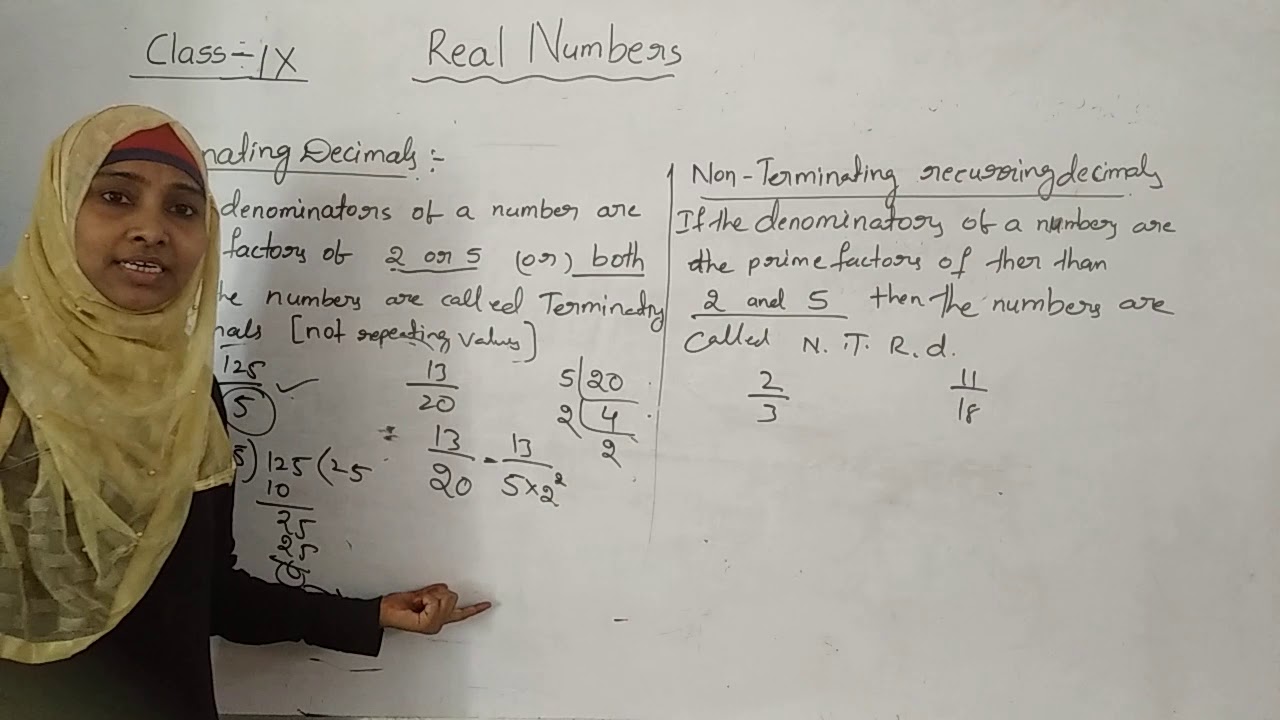 Class - IX
Real Numbers
nating Decimals :-
denominators of a number are
factors of 2 or 5 (or) both
he numbers are called Terminatry
nals [not repeating values]
125
5
13
20
5 | 20
2 | 4
2
5) 125 (25
10
25
25
13/20 = 13/5×2²
Non-Terminating recurring decimals
If the denominators of a number are
the prime factors of ther than
2 and 5 then the numbers are
called N. T. R. d.
2
3
11
18